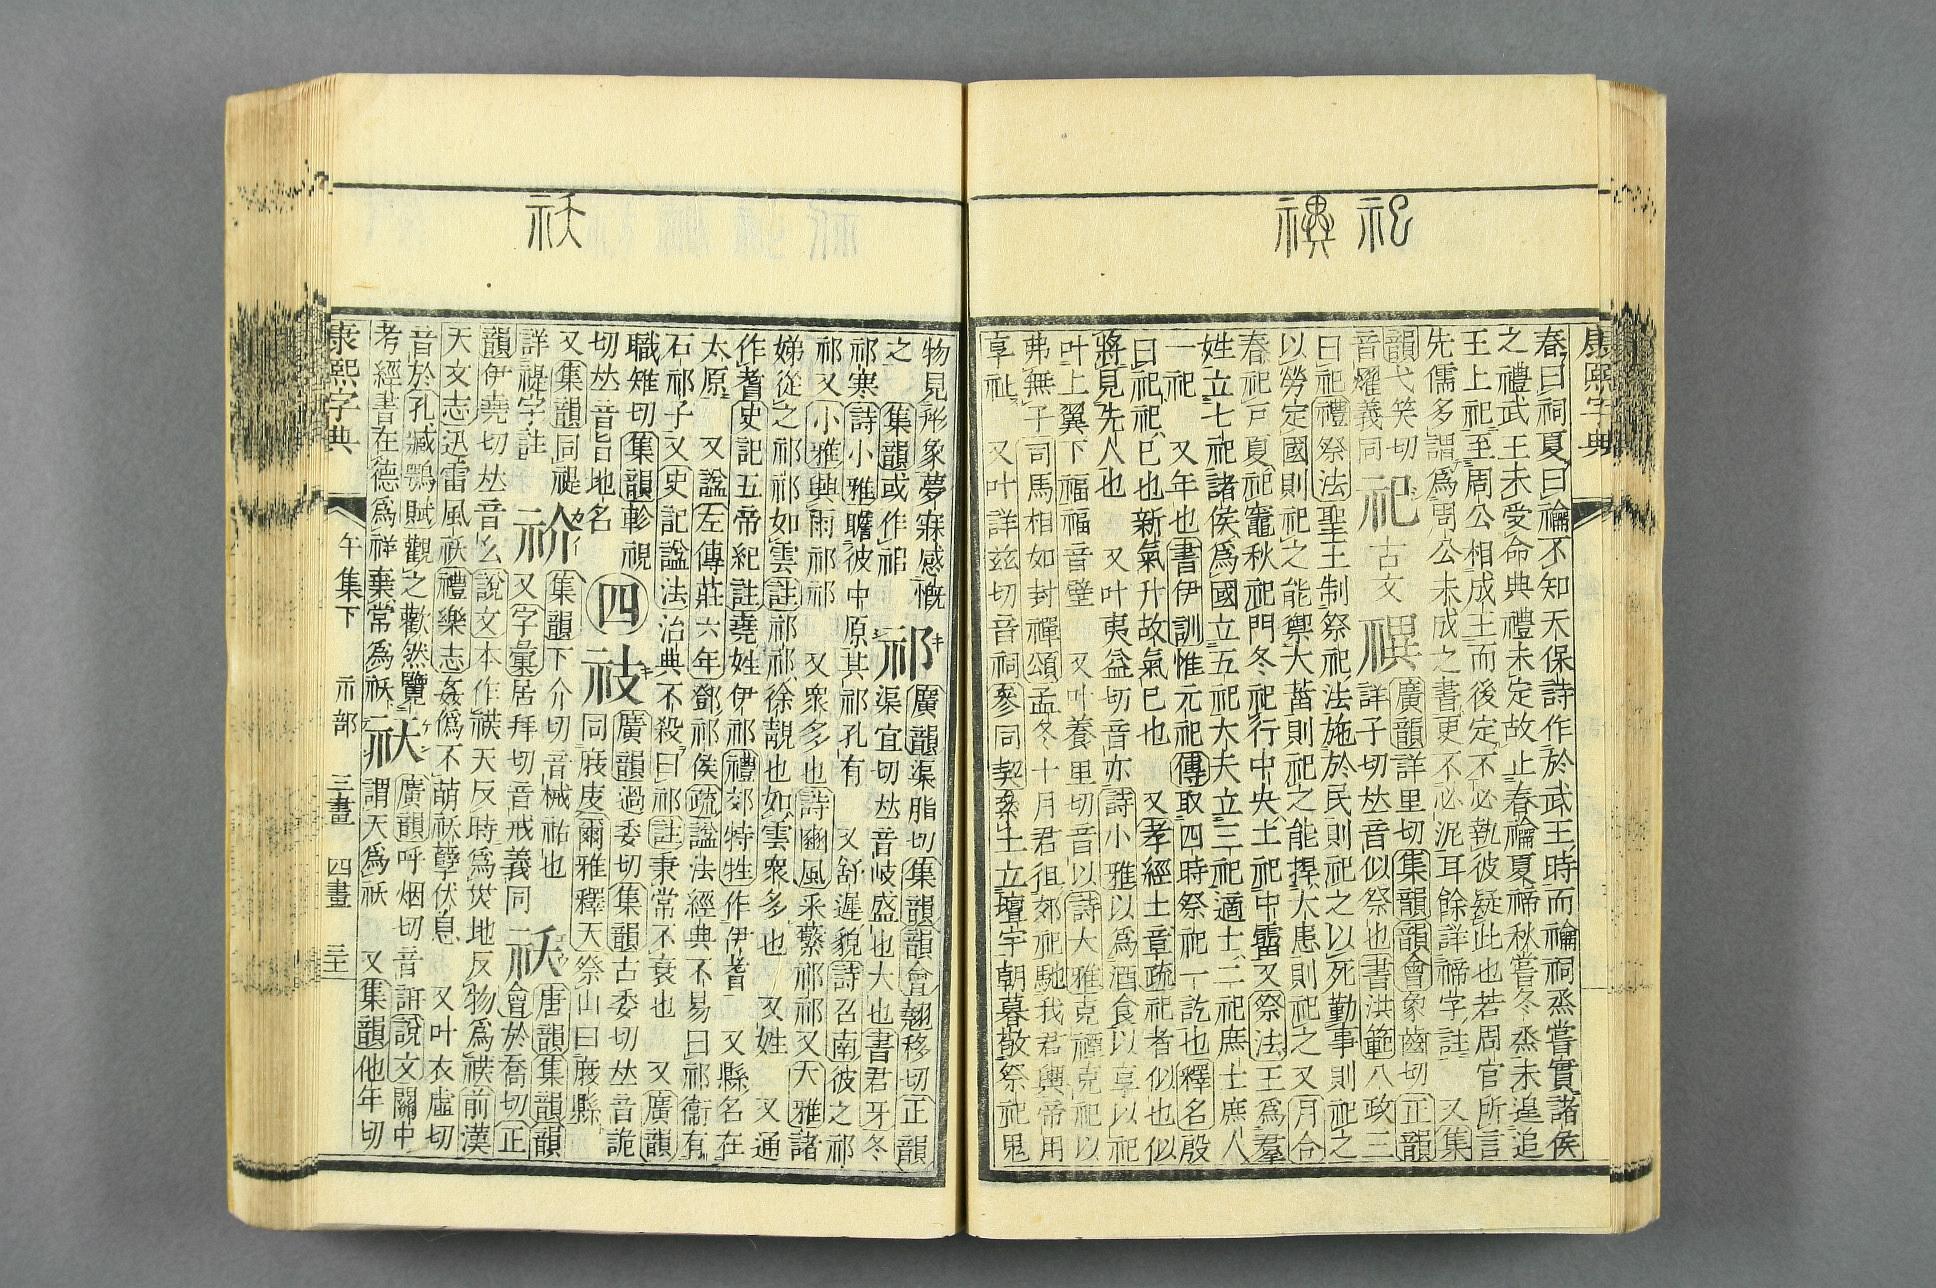 祀 禩
康熙字典
春曰祠夏曰禴不知天保詩作於武王時而禴祠烝嘗實諸侯
之禮武王未受命典禮未定故止春禴夏禘秋嘗冬烝未遑追
王上祀至周公相成王而後定不必執彼疑此也若周官所言
先儒多謂爲周公未成之書更不必泥耳餘詳禘字註 又集
韻弋笑切
音燿義同
祀古文禩
廣韻詳里切集韻韻會象齒切正韻
詳子切𠀤音似祭也書洪範八政三
曰祀禮祭法聖王制祭祀法施於民則祀之以死勤事則祀之
以勞定國則祀之能禦大菑則祀之能捍大患則祀之又月令
春祀戸夏祀竈秋祀門冬祀行中央土祀中霤又祭法王爲羣
姓立七祀諸侯爲國立五祀大夫立三祀適士二祀庶士庶人
一祀 又年也書伊訓惟元祀傳取四時祭祀一訖也釋名殷
曰祀祀巳也新氣升故氣巳也 又孝經士章疏祀者似也似
將見先人也 又叶夷益切音亦詩小雅以爲酒食以享以祀
叶上翼下福福音璧 又叶養里切音以詩大雅克禋克祀以
弗無子司馬相如封禪頌孟冬十月君徂郊祀馳我君輿帝用
享祉 又叶詳兹切音祠參同契累土立壇宇朝暮敬祭祀鬼
祆
物見形象夢寐感慨
之 集韻或作䄎
祁
廣韻渠脂切集韻韻會翹移切正韻
渠宜切𠀤音岐盛也大也書君牙冬
祁寒詩小雅瞻彼中原其祁孔有 又舒遲貌詩召南彼之祁
祁又小雅興雨祁祁 又衆多也詩豳風采蘩祁祁又大雅諸
娣從之祁祁如雲註祁祁徐靚也如雲衆多也 又姓 又通
作耆史記五帝紀註堯姓伊祁禮郊特牲作伊耆 又縣名在
太原 又諡左傳莊六年鄧祁侯疏諡法經典不易曰祁衞有
石祁子又史記諡法治典不殺曰祁註秉常不衰也 又廣韻
職雉切集韻軫視
切𠀤音旨地名
四
衼
廣韻過委切集韻古委切𠀤音詭
同庪庋爾雅釋天祭山曰庪縣
又集韻同禔
詳禔字註
祄
集韻下介切音械祐也
又字彙居拜切音戒義同
祅
唐韻集韻
會於喬切正
韻伊堯切𠀤音幺說文本作䄏天反時爲烖地反物爲䄏前漢
天文志迅雷風祅禮樂志姦僞不萌祅孽伏息 又叶衣虛切
音於孔臧鴞賦觀之歡然覽
考經書在德爲祥棄常爲祅
祆
廣韻呼烟切音訮說文關中
謂天爲祆 又集韻他年切
康熙字典
午集下 示部 三畫 四畫 三